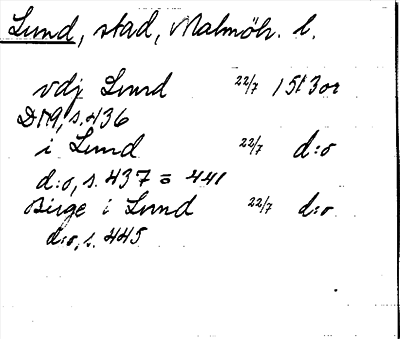 Lund, stad, Malmöh. l.
vdj Lund 22/7 1530 or
DN9, s. 436
i Lund 22/7 d:o
d:o, s. 437 = 441
Birge i Lund 22/7 d:o
d:o, s. 445